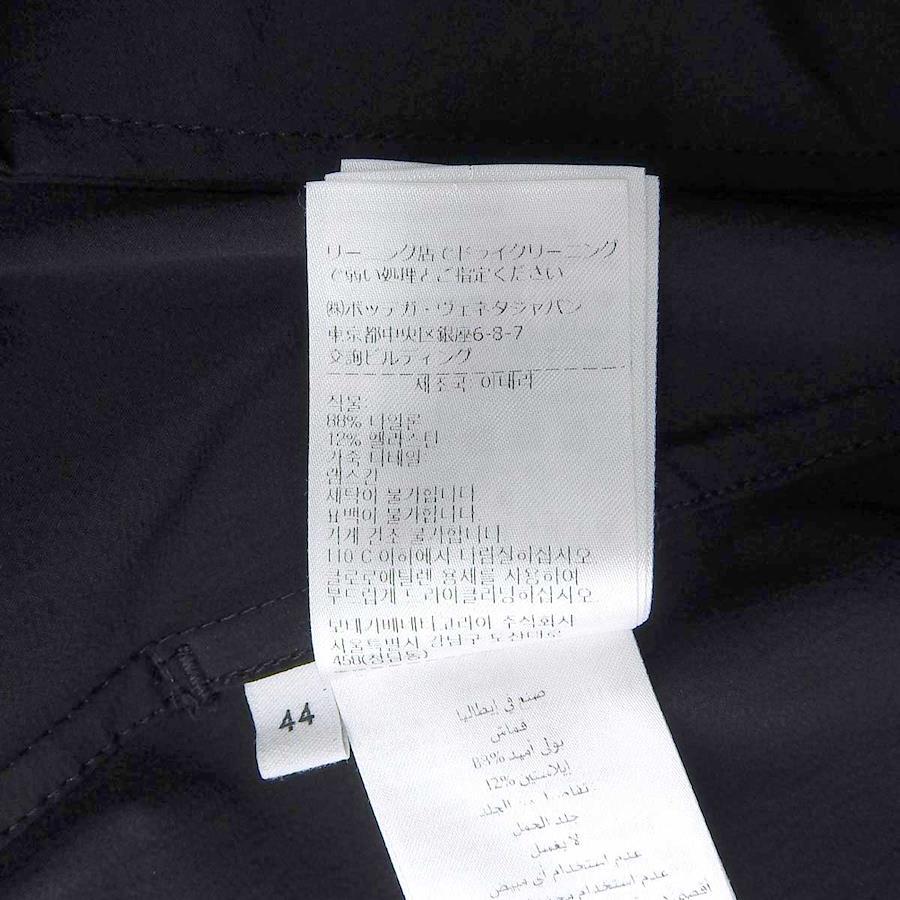 リーニング店でドライクリーニング
で弱い処理とご指定ください
㈱ボッテガ・ヴェネタジャパン
東京都中央区銀座6-8-7
交詢ビルディング
제조국 이태리
직물:
88% 나일론
12% 엘라스틴
가죽 디테일
램스킨
세탁이 불가합니다
표백이 불가합니다
기계 건조 불가합니다
110 C 이하에서 다림질하십시오
클로로에틸렌 용제를 사용하여
부드럽게 드라이클리닝하십시오
보테가베네타코리아 주식회사
서울특별시 강남구 도산대로
458(청담동)
44
صنع في إيطاليا
قماش
بولي أميد 88%
إيلاستين 12%
الجلد
جلد الحمل
لا يغسل
عدم استخدام أي مبيض
عدم استخدام